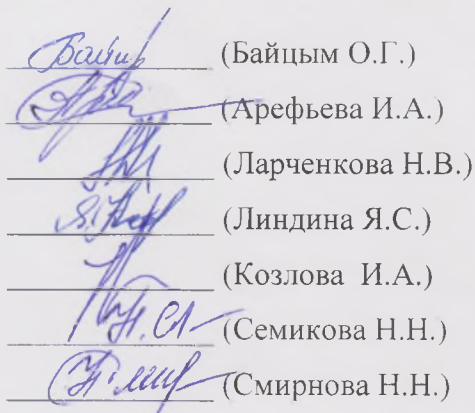 (Байцым О.Г.)
(Арефьева И.А.)
(Ларченкова Н.В.)
(Линдина Я.С.)
(Козлова И.А.)
(Семикова Н.Н.)
(Смирнова Н.Н.)